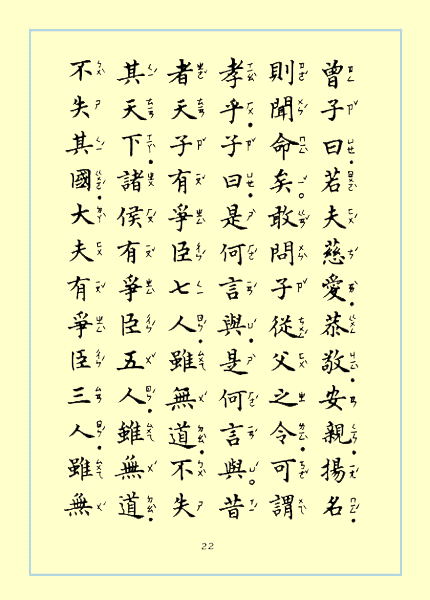 曾子曰若夫慈愛恭敬安親揚名
則聞命矣敢問子從父之令可謂
孝乎子曰是何言與是何言與昔
者天子有爭臣七人雖無道不失
其天下諸侯有爭臣五人雖無道
不失其國大夫有爭臣三人雖無
22